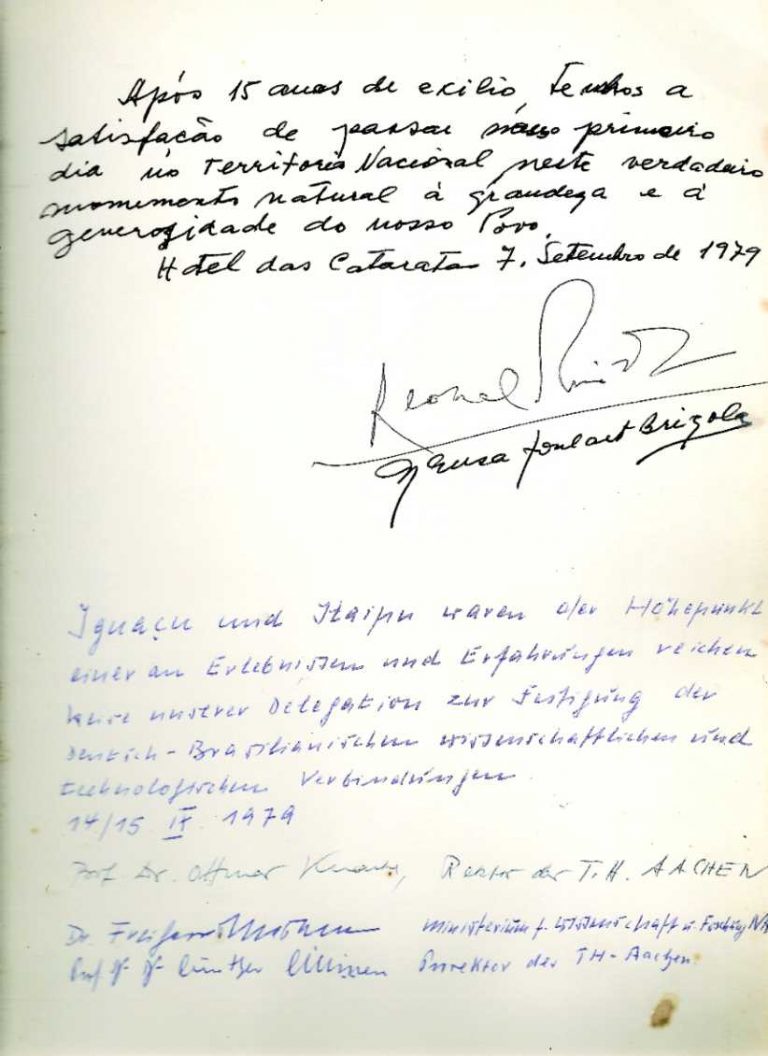 Após 15 anos de exilio, temos a
satisfação de passar nosso primeiro
dia no Territorio Nacional neste verdadeiro
monumento natural à grandeza e à
generosidade do nosso Povo.
Hotel das Cataratas 7. Setembro de 1979
Leonel Brizola
Neusa Goulart Brizola
Iguaçu und Itaipu waren der Höhepunkt
einer an Erlebnissen und Erfahrungen reichen
Reise unserer Delegation zur Festigung der
Deutsch-Brasilianischen wissenschaftlichen und
technologischen Verbindungen
14/15 IX 1979
Prof Dr. Ottmar Knacke, Rektor der T.H. AACHEN
Dr. Ministerium f. Wissenschaft u. Forschung
Prof Dr Dr Günther Prorektor der TH-Aachen